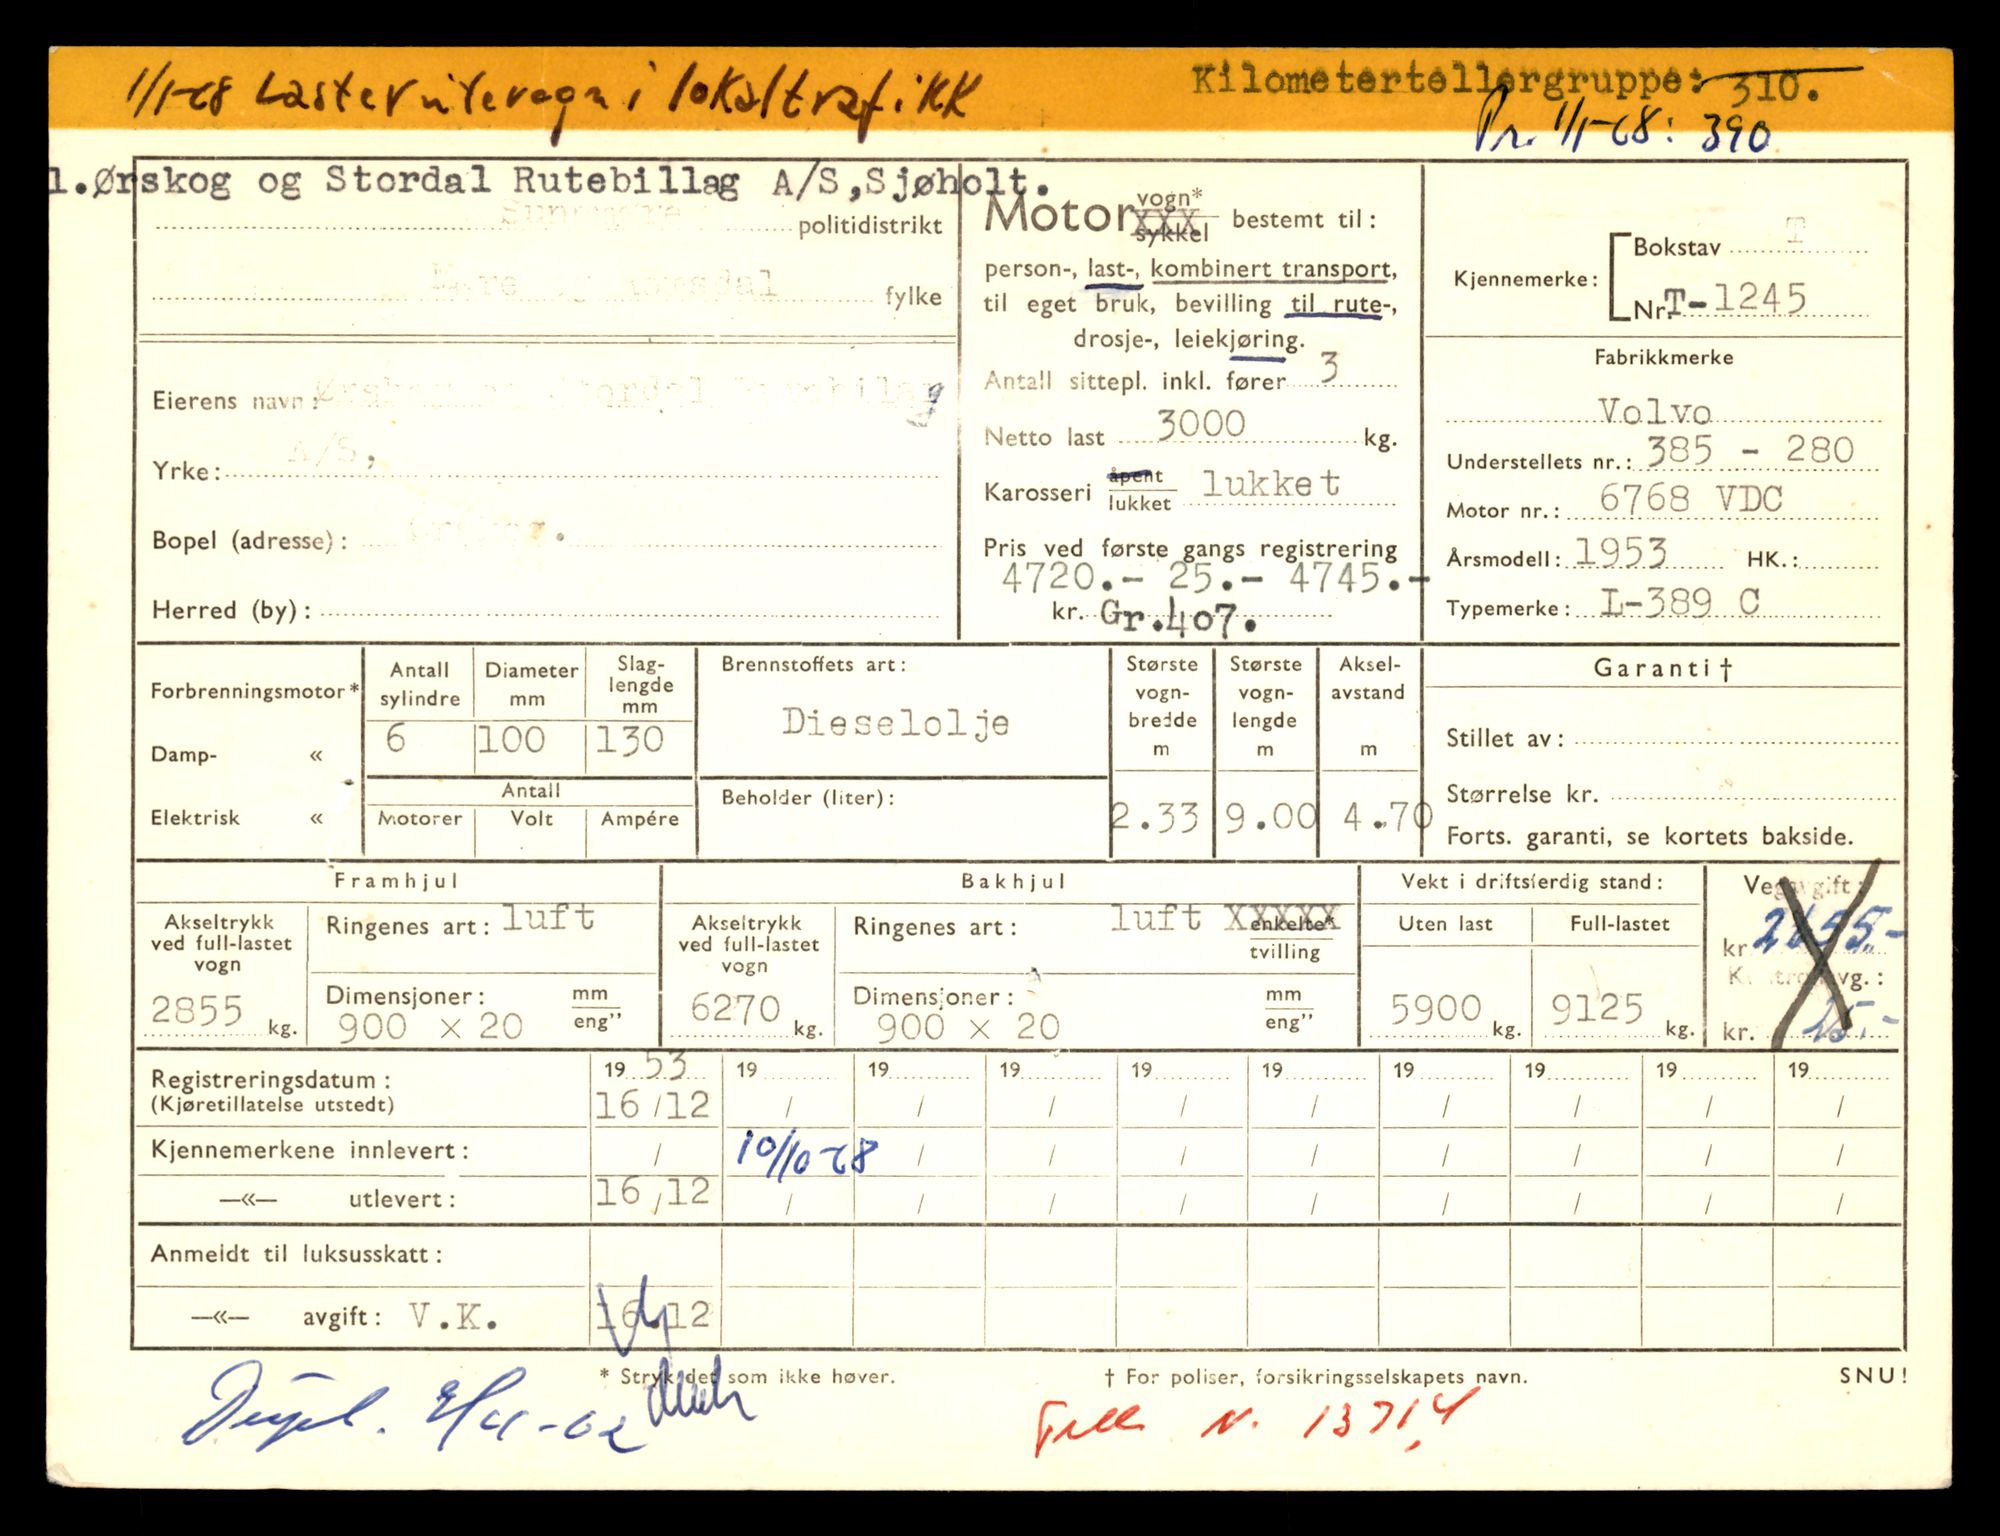 1/1-68 Lasteruteragn i lokaltrafikk
Kilometertellergruppe: 310.
Pr. 1/1-68: 390
1.Ørskog og Stordal Rutebillag A/S,Sjøholt.
Sunnmøre politidistrikt
Møre og Romsdal fylke
Eierens navn: Ørskog og Stordal Rutebilag
A/S,
Yrke:
Bopel (adresse): Ørskog.
Herred (by):
Motor vogn* XXX sykkel bestemt til:
person-, last-, kombinert transport,
til eget bruk, bevilling til rute-,
drosje-, leiekjøring.
Antall sittepl. inkl. fører 3
Netto last 3000 kg.
Karosseri åpent lukket lukket
Pris ved første gangs registrering
4720.- 25.- 4745.-
kr. Gr.407.
Kjennemerke: Bokstav T
Nr. T-1245
Fabrikkmerke
Volvo
Understellets nr.: 385 - 280
Motor nr.: 6768 VDC
Årsmodell: 1953 HK.:
Typemerke: L-389 C
Forbrenningsmotor*
Damp- «
Elektrisk «
Antall sylindre Diameter mm Slag-lengde mm
6 100 130
Antall
Motorer Volt Ampére
Brennstoffets art:
Dieselolje
Beholder (liter):
Største vogn-bredde m
2.33
Største vogn-lengde m
9.00
Aksel-avstand m
4.70
Garanti †
Stillet av:
Størrelse kr.
Forts. garanti, se kortets bakside.
Framhjul
Akseltrykk ved full-lastet vogn
2855 kg.
Ringenes art: luft
Dimensjoner: mm eng"
900 x 20
Bakhjul
Akseltrykk ved full-lastet vogn
6270 kg.
Ringenes art: luft XXXXX enkelte* tvilling
Dimensjoner: mm eng"
900 x 20
Vekt i driftsferdig stand:
Uten last Full-lastet
5900 kg. 9125 kg.
Vegavgift:
kr 2655.-
Kontrollavg.:
kr. 25.-
Registreringsdatum: 19 53 19 19 19 19 19 19 19 19 19
(Kjøretillatelse utstedt) 16/12 / / / / / / / / /
Kjennemerkene innlevert: / 10/10-68 / / / / / / / /
—«— utlevert: 16/12 / / / / / / / / /
Anmeldt til luksusskatt:
—«— avgift: V.K. 16.12
* Stryk det som ikke høver.
† For poliser, forsikringsselskapets navn.
SNU!